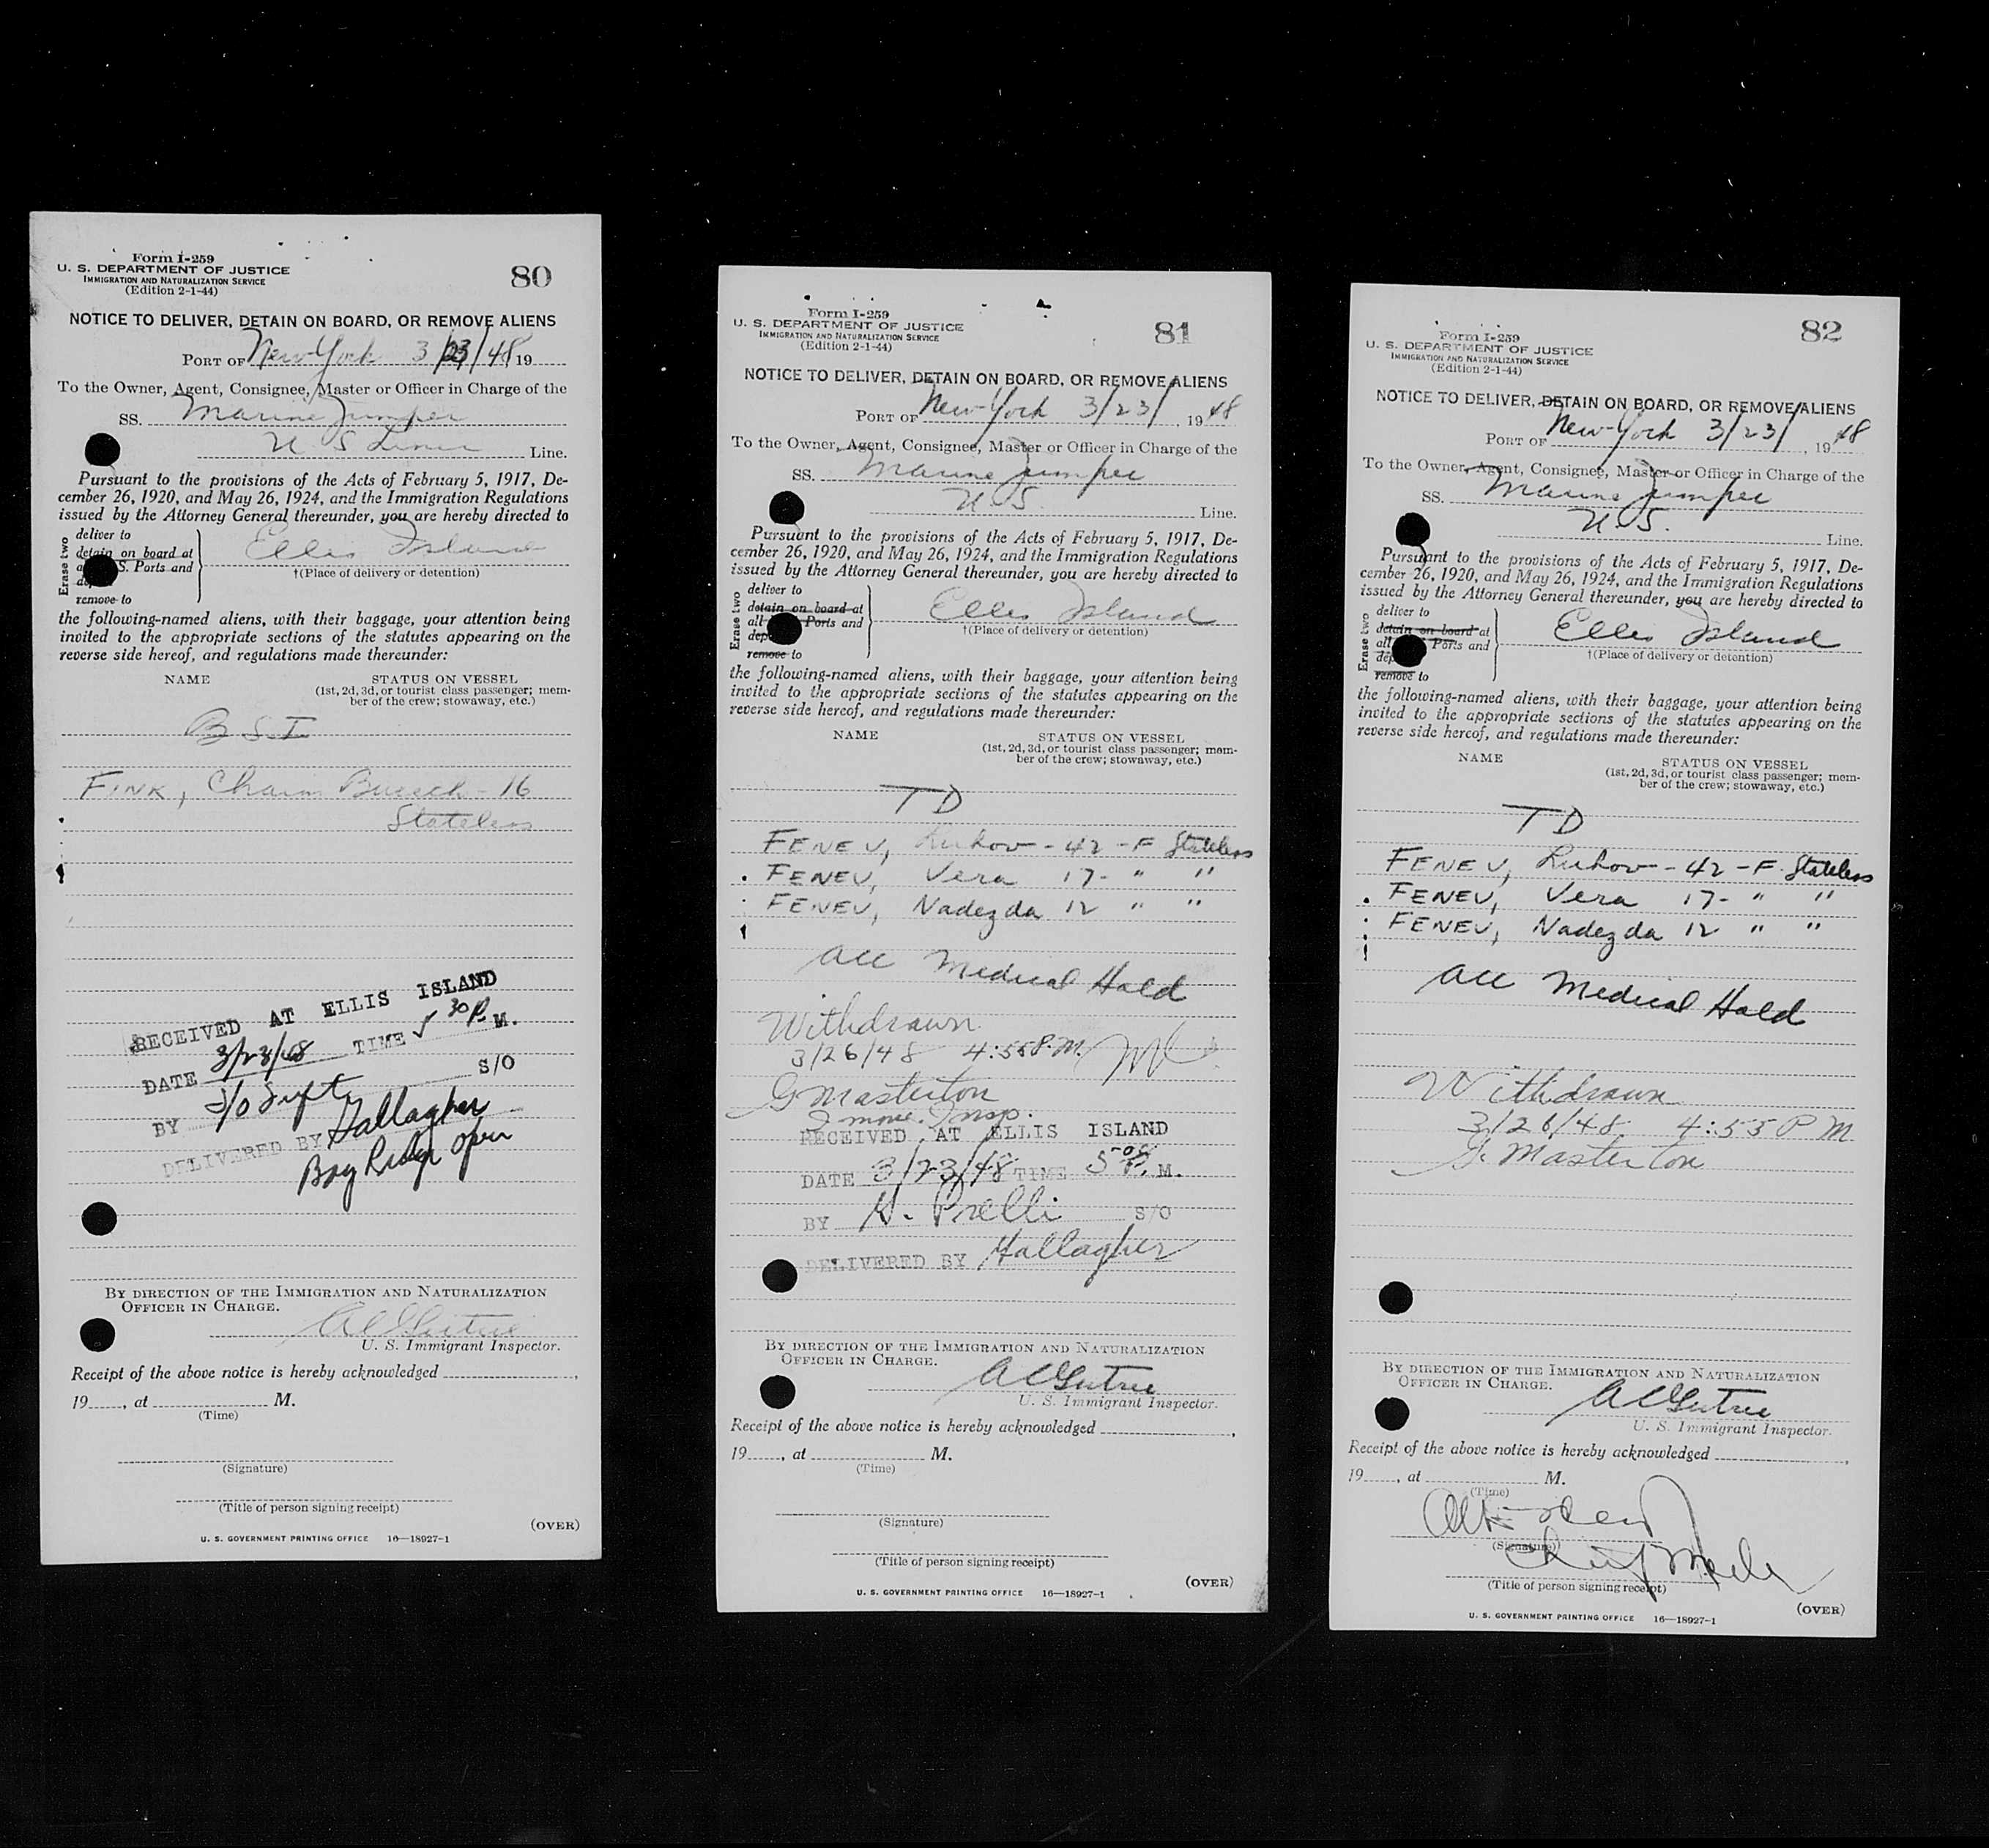 Form I-259
U. S. DEPARTMENT OF JUSTICE
IMMIGRATION AND NATURALIZATION SERVICE
(Edition 2-1-44)
80
NOTICE TO DELIVER, DETAIN ON BOARD, OR REMOVE ALIENS
PORT OF New York 3/23/48 19
To the Owner, Agent, Consignee, Master or Officer in Charge of the
SS. Marine Jumper
U S Lines Line.
Pursuant to the provisions of the Acts of February 5, 1917, De-
cember 26, 1920, and May 26, 1924, and the Immigration Regulations
issued by the Attorney General thereunder, you are hereby directed to
Erase two
deliver to
detain on board at
S. Ports and
remove to
Ellis Island
†(Place of delivery or detention)
the following-named aliens, with their baggage, your attention being
invited to the appropriate sections of the statutes appearing on the
reverse side hereof, and regulations made thereunder:
NAME STATUS ON VESSEL
(1st, 2d, 3d, or tourist class passenger; mem-
ber of the crew; stowaway, etc.)
B S I
FINK, Chaim - 16
Stateless
RECEIVED AT ELLIS ISLAND
DATE 3/23/48 TIME 30 P. M.
BY S/O
DELIVERED BY Gallagher
Bay Ridge Open
BY DIRECTION OF THE IMMIGRATION AND NATURALIZATION
OFFICER IN CHARGE.
U. S. Immigrant Inspector.
Receipt of the above notice is hereby acknowledged
19 , at M.
(Time)
(Signature)
(Title of person signing receipt)
(OVER)
U. S. GOVERNMENT PRINTING OFFICE 16—18927-1
Form I-259
U. S. DEPARTMENT OF JUSTICE
IMMIGRATION AND NATURALIZATION SERVICE
(Edition 2-1-44)
81
NOTICE TO DELIVER, DETAIN ON BOARD, OR REMOVE ALIENS
PORT OF New York 3/23/ , 1948
To the Owner, Agent, Consignee, Master or Officer in Charge of the
SS. Marine Jumper
U.S. Line.
Pursuant to the provisions of the Acts of February 5, 1917, De-
cember 26, 1920, and May 26, 1924, and the Immigration Regulations
issued by the Attorney General thereunder, you are hereby directed to
Erase two
deliver to
detain on board at
all Ports and
remove to
Ellis Island
†(Place of delivery or detention)
the following-named aliens, with their baggage, your attention being
invited to the appropriate sections of the statutes appearing on the
reverse side hereof, and regulations made thereunder:
NAME STATUS ON VESSEL
(1st, 2d, 3d, or tourist class passenger; mem-
ber of the crew; stowaway, etc.)
TD
FENEV, Lukov - 42 - F Stateless
FENEV, Vera 17 - " "
FENEV, Nadezda 12 " "
All Medical Hold
Withdrawn
3/26/48 4:55 P.M.
G Masterton
Immig. Insp.
RECEIVED AT ELLIS ISLAND
DATE 3/23/48 TIME 5 P. M.
BY S/O
DELIVERED BY Gallagher
BY DIRECTION OF THE IMMIGRATION AND NATURALIZATION
OFFICER IN CHARGE.
U. S. Immigrant Inspector.
Receipt of the above notice is hereby acknowledged
19 , at M.
(Time)
(Signature)
(Title of person signing receipt)
(OVER)
U. S. GOVERNMENT PRINTING OFFICE 16—18927-1
Form I-259
U. S. DEPARTMENT OF JUSTICE
IMMIGRATION AND NATURALIZATION SERVICE
(Edition 2-1-44)
82
NOTICE TO DELIVER, DETAIN ON BOARD, OR REMOVE ALIENS
PORT OF New York 3/23/ , 1948
To the Owner, Agent, Consignee, Master or Officer in Charge of the
SS. Marine Jumper
U.S. Line.
Pursuant to the provisions of the Acts of February 5, 1917, De-
cember 26, 1920, and May 26, 1924, and the Immigration Regulations
issued by the Attorney General thereunder, you are hereby directed to
Erase two
deliver to
detain on board at
all Ports and
remove to
Ellis Island
†(Place of delivery or detention)
the following-named aliens, with their baggage, your attention being
invited to the appropriate sections of the statutes appearing on the
reverse side hereof, and regulations made thereunder:
NAME STATUS ON VESSEL
(1st, 2d, 3d, or tourist class passenger; mem-
ber of the crew; stowaway, etc.)
TD
FENEV, Lukov - 42 - F Stateless
FENEV, Vera 17 - " "
FENEV, Nadezda 12 " "
All Medical Hold
Withdrawn
3/26/48 4:55 PM
G. Masterton
BY DIRECTION OF THE IMMIGRATION AND NATURALIZATION
OFFICER IN CHARGE.
U. S. Immigrant Inspector.
Receipt of the above notice is hereby acknowledged
19 , at M.
(Time)
(Signature)
(Title of person signing receipt)
(OVER)
U. S. GOVERNMENT PRINTING OFFICE 16—18927-1